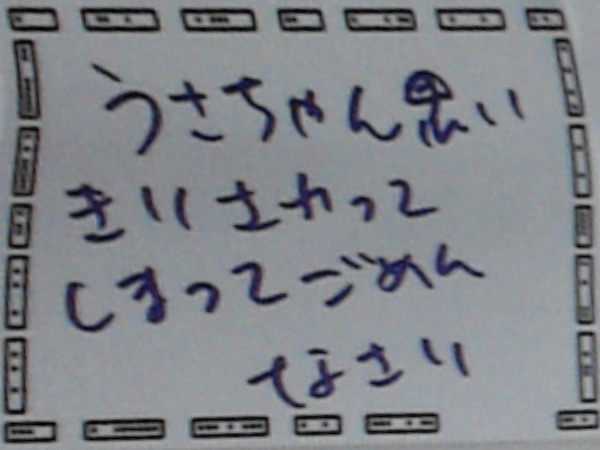 うさちゃん思い
きりさわって
しまってごめん
なさい